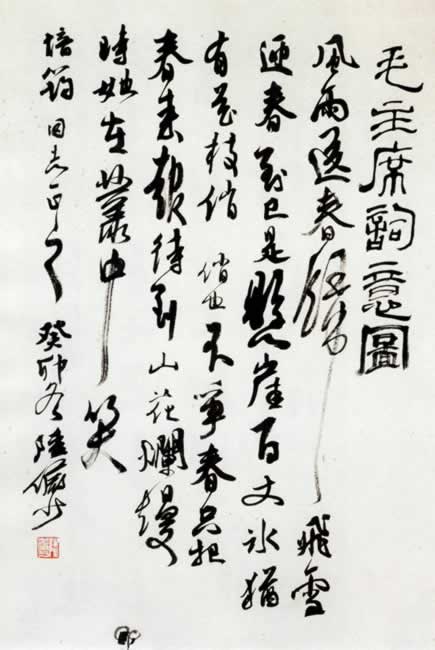 毛主席詞意圖
風雨送春歸飛雪
迎春到已是懸崖百丈冰猶
有花枝俏俏也不爭春只把
春來報待到山花爛熳
時她在叢中笑
培同志正之癸卯冬陸儼少